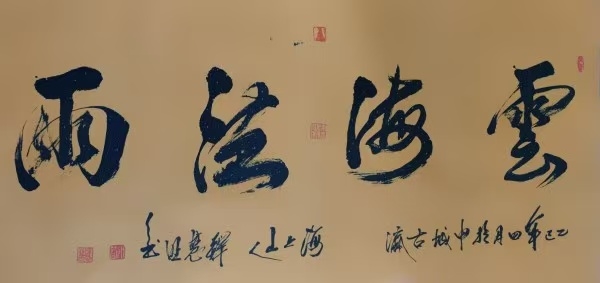 雲海法雨
乙巳年四月於中城古瀛
海上山人 釋慧